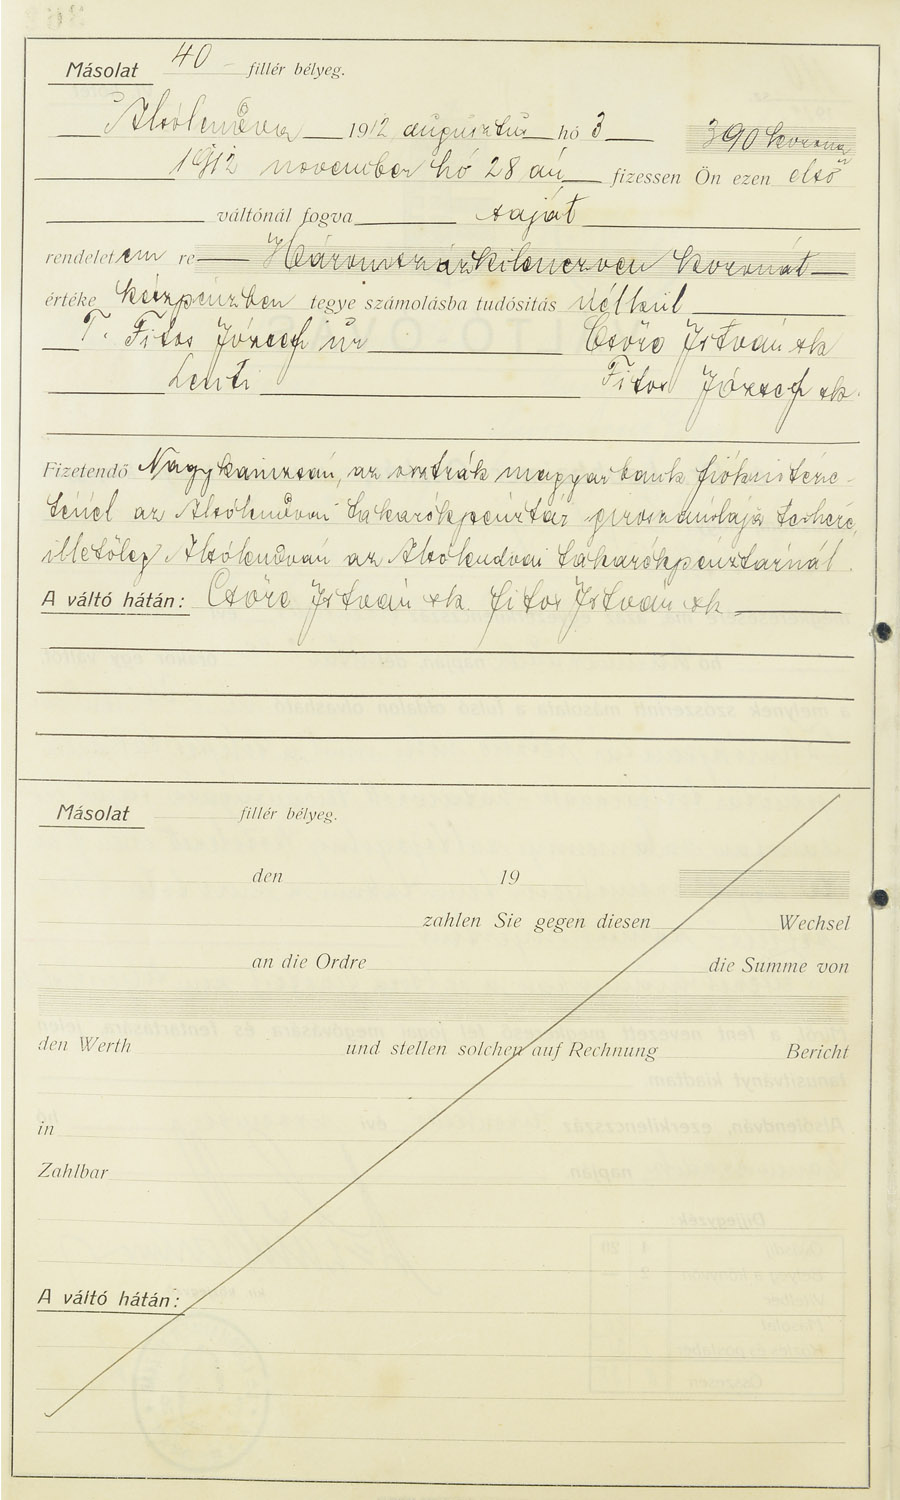 Másolat 40 fillér bélyeg.
Alsólendva 1912 augusztus hó 3 390 korona
1912 november hó 28 án fizessen Ön ezen első
váltónál fogva saját
rendeletem re Háromszázkilenczven koronát
értéke készpénzben tegye számolásba tudósitás nélkül
T. Fitos József úr Csőre István sk
Lenti Fitos József sk.
Fizetendő Nagykanizsán, az osztrák magyar bank fiókintéze-
ténél az Alsólendvai takarékpénztár giroszámlája terhére,
illetőleg Alsólendván az Alsólendvai takarékpénztárnál.
A váltó hátán: Csőre István sk. Fitos István sk
Másolat fillér bélyeg.
den 19
zahlen Sie gegen diesen Wechsel
an die Ordre die Summe von
den Werth und stellen solchen auf Rechnung Bericht
in
Zahlbar
A váltó hátán: